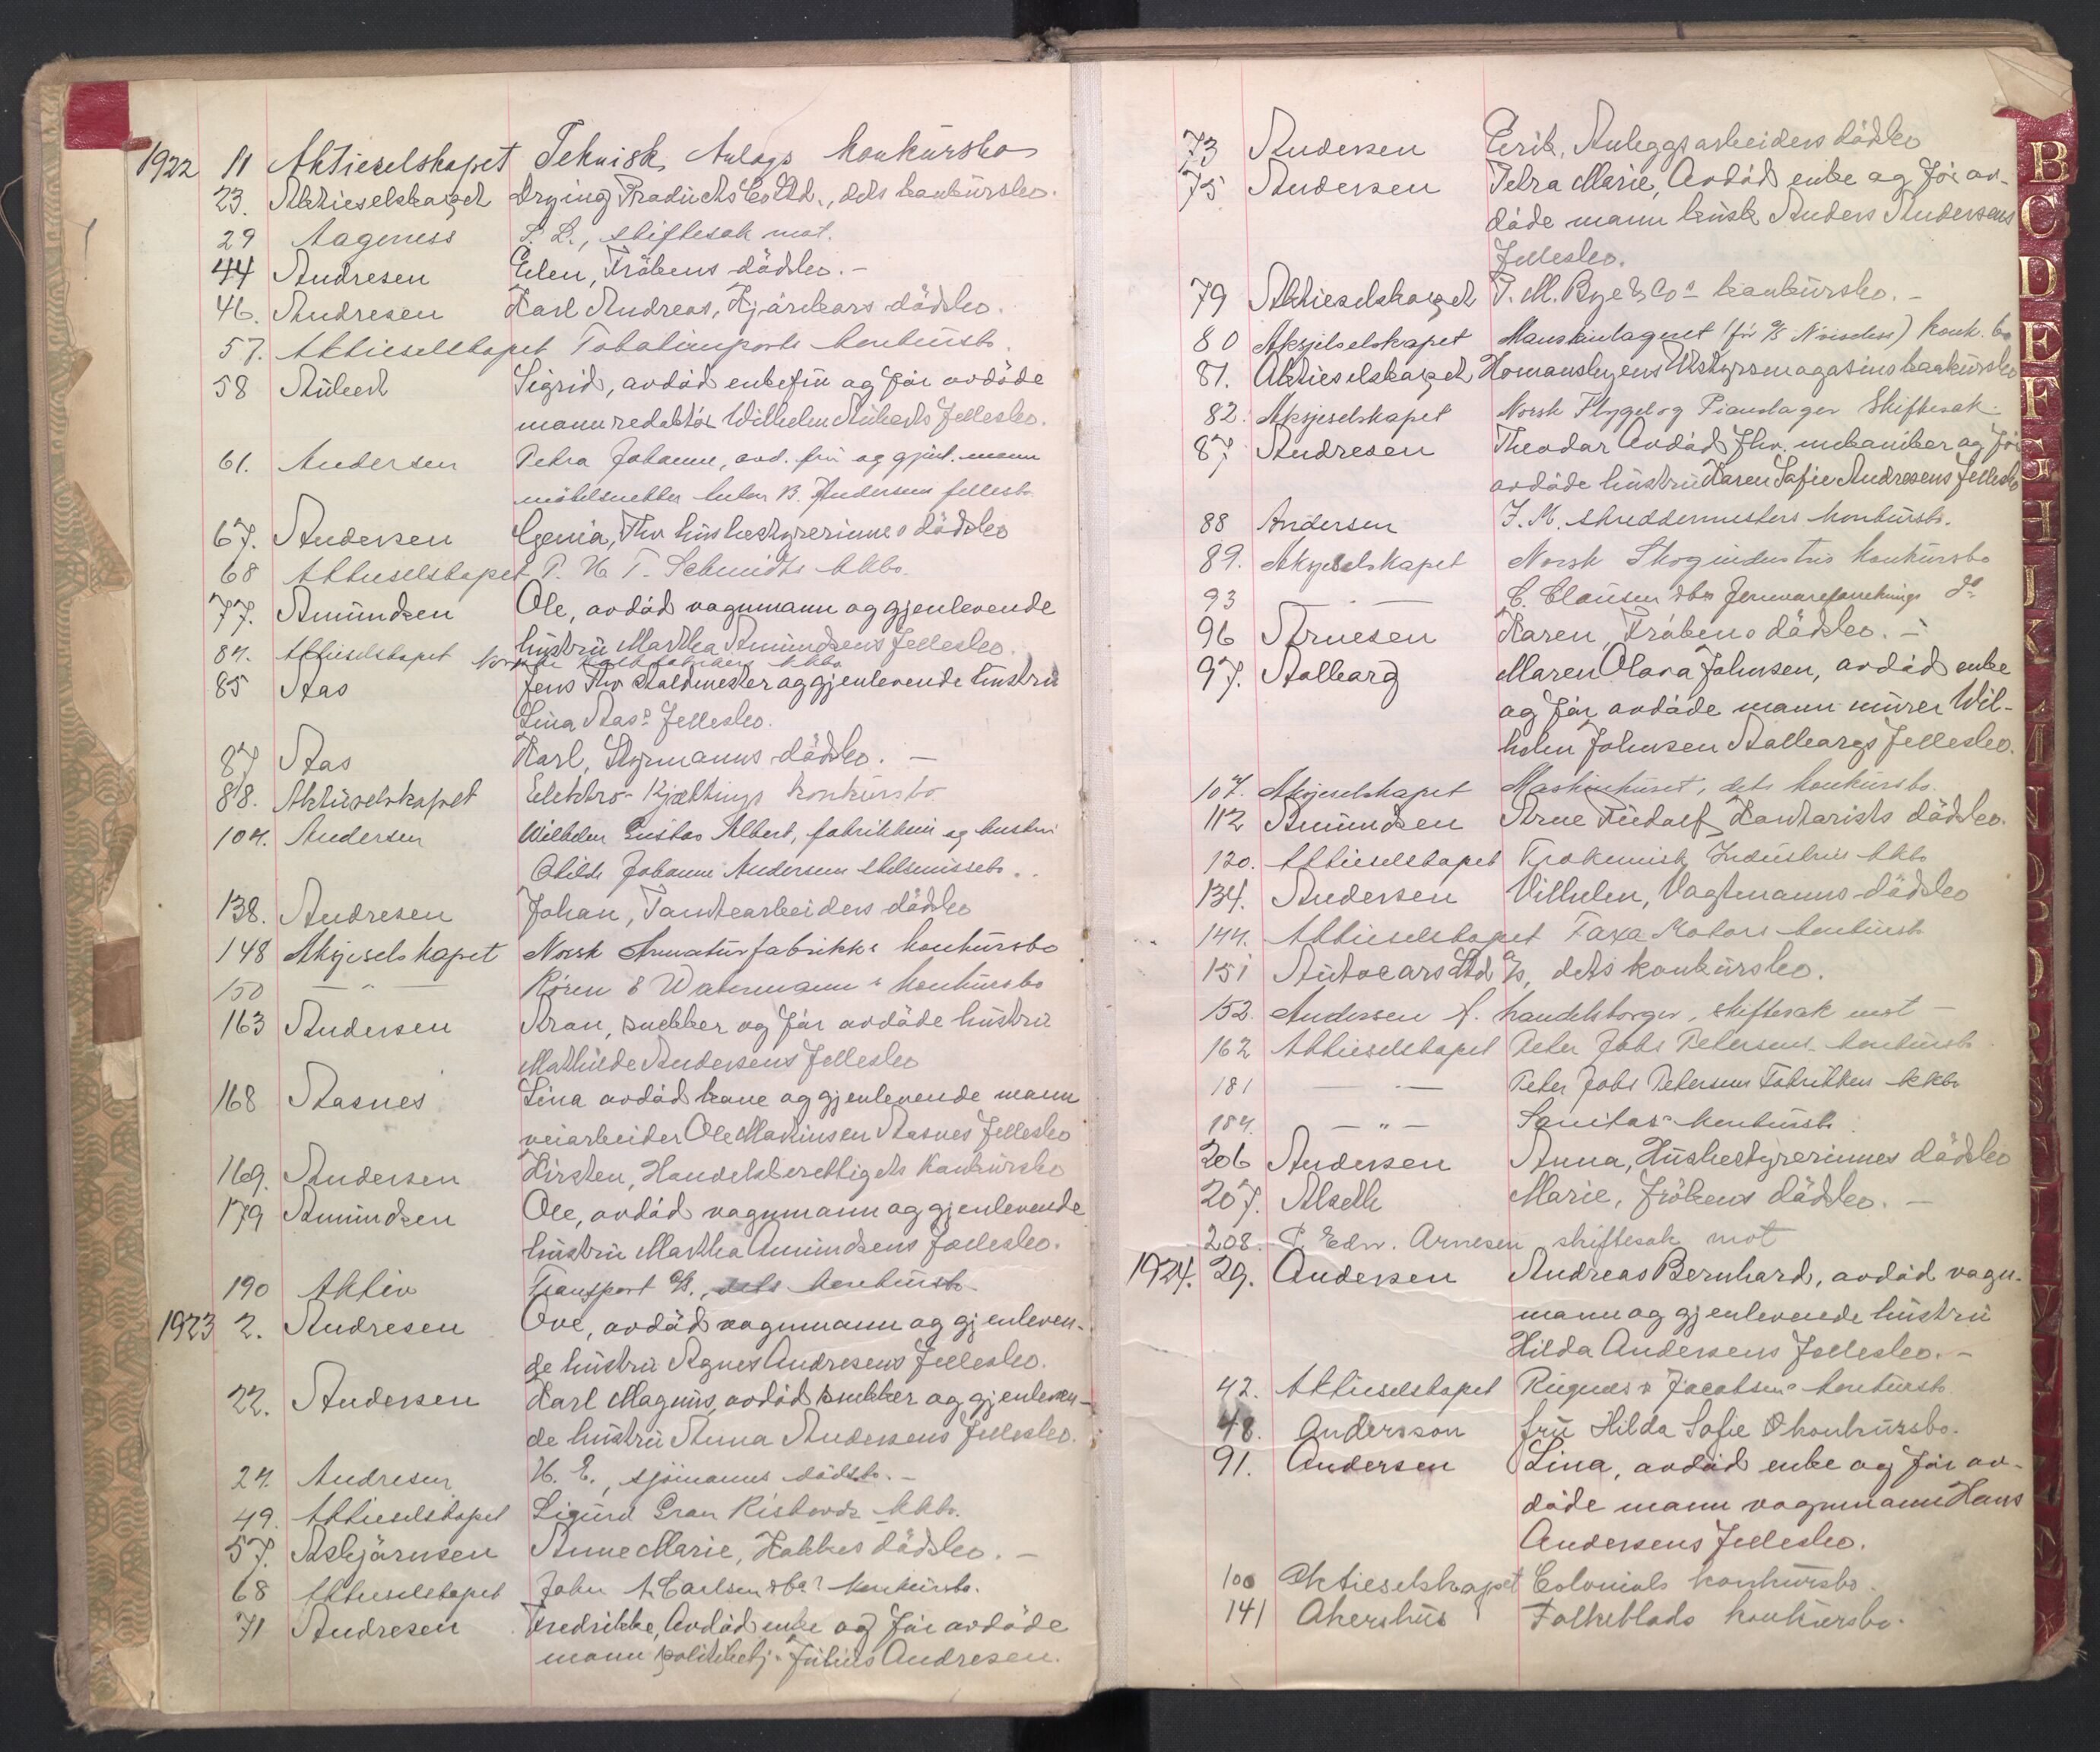 1922 11 Aktieselskapet Teknisk Anlægs konkursbo
23. Aktieselskapet Drying Products Co Ltd., dets konkursbo.
29 Aageness S. L., skiftesak mot.
44 Andresen Elen, Frökens dödsbo. -
46. Andresen Karl Andreas, Kjörekars dödsbo.
57. Aktieselskapet Tobakimports konkursbo.
58 Aubert Sigrid, avdöd enkefru og för avdöde
mann redaktör Wilhelm Auberts fellesbo.
61. Andersen Petra Johanne, avd. fru og gjenl. mann
möbelsnekker B. Andersens fellesbo.
67. Andersen Genia, Fhv husbestyrerinnes dödsbo
68 Aktieselskapet P. H. T. Schmidts kkbo.
77. Amundsen Ole, avdöd vognmann og gjenlevende
hustru Martha Amundsens fellesbo.
84. Aktieselskapet Norske kkbo
85 Aas Jens Fhv staldmester og gjenlevende hustru
Lina Aas' fellesbo.
87 Aas Karl, Styrmanns dödsbo. -
88. Aktieselskapet Elektro-Kjættings konkursbo
104. Andersen Wilhelm Gustav Albert, fabrikkeier og hustru
Otilde Johanne Andersens skilsmissebo.
138. Andresen Johan, Tomtearbeiders dödsbo
148 Aksjeselskapet Norsk Armaturfabrikks konkursbo
150 — " — Rören & Watermanns konkursbo
163 Andersen Aron, snekker og för avdöde hustru
Mathilde Andersens fellesbo
168 Aasnes Lina avdöd kone og gjenlevende mann
veiarbeider Ole Martinsen Aasnes fellesbo
169. Andersen Kirsten, Handelsberettigets Konkursbo
179 Amundsen Ole, avdöd vognmann og gjenlevende
hustru Martha Amundsens fellesbo.
190 Aktiv Transport A/S., dets konkursbo
1923 2. Andresen Ove, avdöd vognmann og gjenleven-
de hustru Agnes Andresens fellesbo.
22. Andersen Karl Magnus, avdöd snekker og gjenleven-
de hustru Anna Andersens fellesbo.
24. Andresen H. E., sjömanns dödsbo. -
49. Aktieselskapet Sigurd Gran kkbo.
57. Asbjörnsen Anne Marie, Kokkes dödsbo. -
68 Aktieselskapet John A. Carlsen & Co's konkursbo.
71 Andresen Fredrikke, Avdöd enke og för avdöde
mann politibetj. Julius Andresen.
73 Andersen Eerik, Anleggsarbeiders dödsbo
75 Andersen Petra Marie, Avdöd enke og för av-
döde mann kusk Anders Andersens
fellesbo.
79 Aktieselskapet P. M. Bye & Co's konkursbo. -
80 Aksjeselskapet Manskinlageret (för A/S ) konk. bo
81. Aktieselskapet Homansbyens Utstyrsmagasins konkursbo
82. Aksjeselskapet Norsk Flygel og Pianolager Skiftesak.
87 Andresen Theodor Avdöd fhv. mekaniker og för
avdöde hustru Karen Sofie Andresens fellesbo
88 Andersen J. M. skreddermesters konkursbo.
89. Aksjeselskapet Norsk Skogindustris konkursbo
93 — — C. Clausen & Co Jernvareforretnings do
96 Arnesen Karen, Frökens dödsbo. -
97. Aalberg Maren Olava Johnsen, avdöd enke
og för avdöde mann murer Wil-
helm Johnsen Aalbergs fellesbo.
107. Aksjeselskapet Maskinhuset, dets konkursbo.
112 Amundsen Arne Rudolf, Kontorists dödsbo.
120. Aktieselskapet Industri kkbo
134. Andersen Vilhelm, Vagtmanns dödsbo
144. Aktieselskapet Taxa Motors konkursbo
151 Autocars Ltd A/S, dets konkursbo.
152. Andersen A. handelsborger, skiftesak mot -
162 Aktieselskapet Peter Jobs Petersens konkursbo
181 — — Peter Jobs Petersens Fabrikkers kkbo
184. — " — Sanitas' konkursbo.
206 Andersen Anna, Husbestyrerinnes dödsbo
207. Alseth Marie, Frökens dödsbo. -
208. P. Edv. Arnesen, skiftesak mot
1924. 29. Andersen Andreas Bernhard, avdöd vogn-
mann og gjenlevende hustru
Hilda Andersens fellesbo. -
42. Aktieselskapet Rugnes & Jacobsens konkursbo.
48. Andersson fru Hilda Sofie konkursbo.
91. Andersen Lina, avdöd enke og för av-
döde mann vognmann Hans
Andersens fellesbo.
100 Aktieselskapet Colonials konkursbo.
141 Akershus Folkeblads konkursbo.
B
C
D
E
F
G
H
I
J
K
L
M
N
O
P
Q
R
S
T
U
V